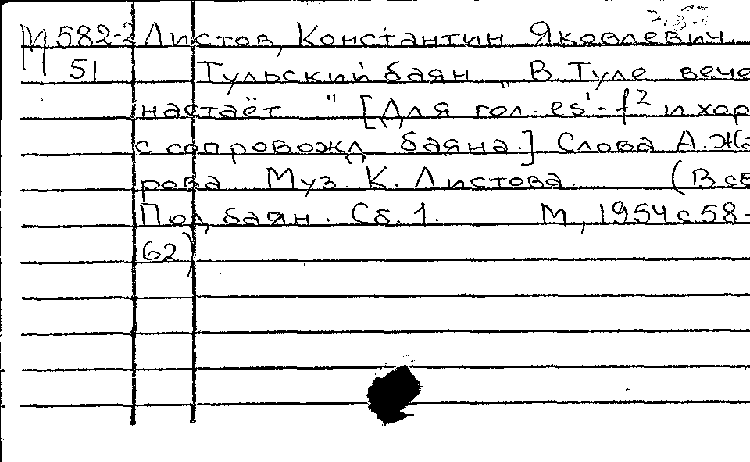 М 582-2 Листов, Константин Яковлевич.
51 Тульский баян „В Туле вече
настаёт " [Для гол. es¹-f² и хор
с сопровожд. баяна.] Слова А. Жа
рова Муз. К. Листова (В сб.
Под баян. Сб. 1. М., 1954 с 58-
62)